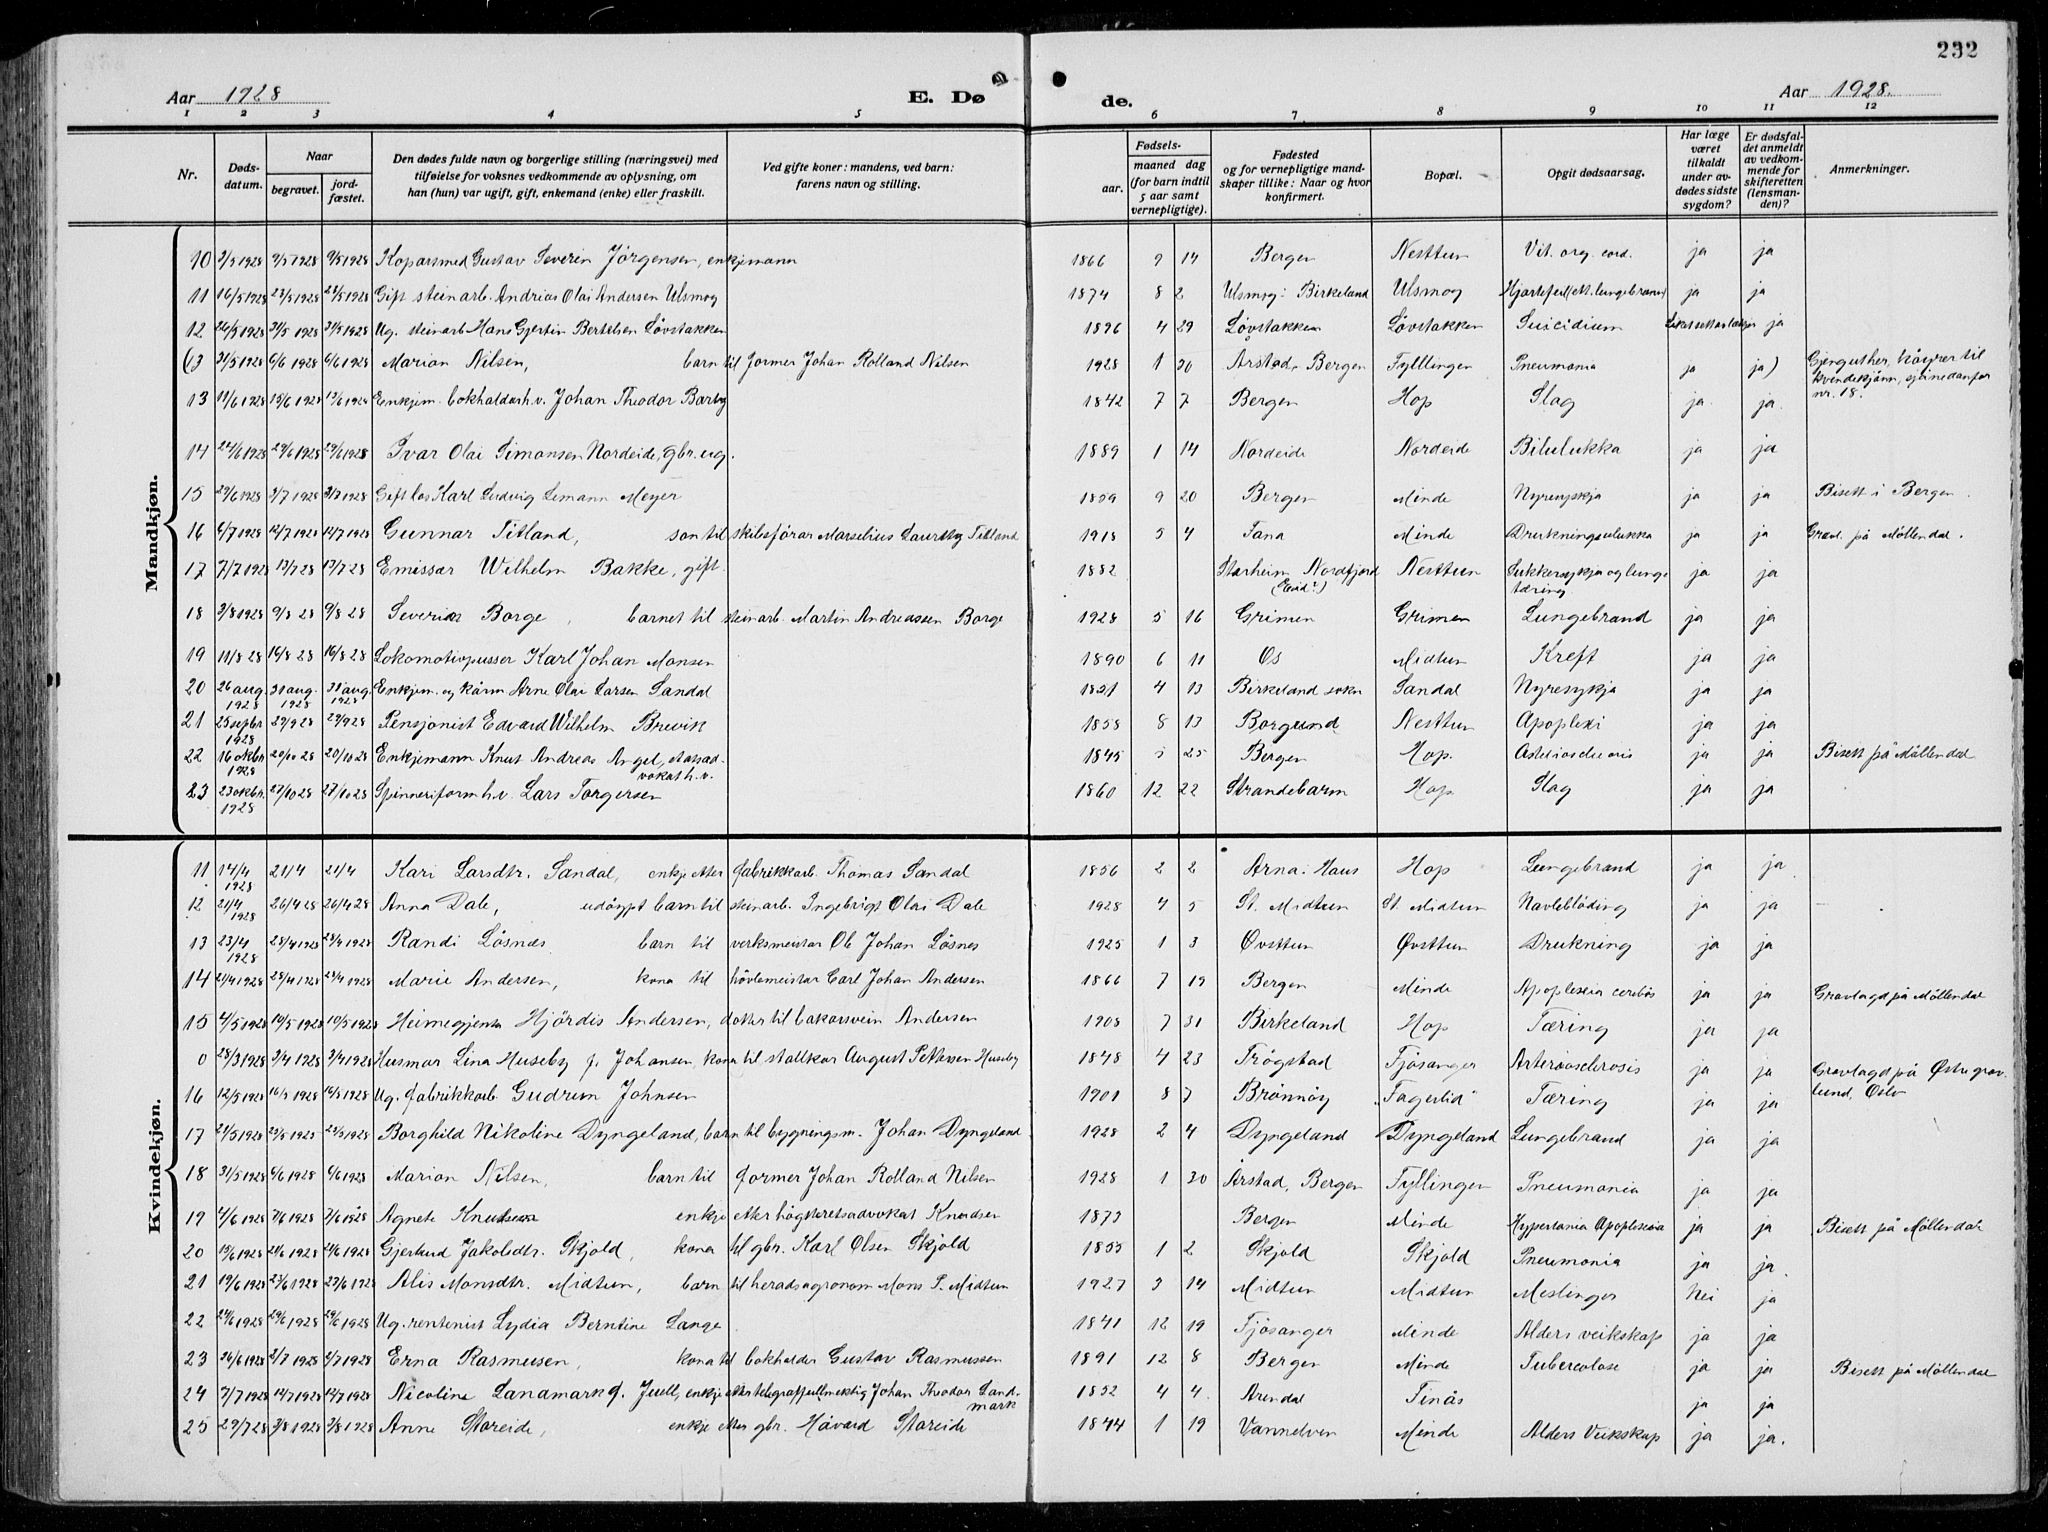 232
Aar 1928 E. Dø de. Aar 1928.
1 2 3 4 5 6 7 8 9 10 11 12
Nr. Døds-datum. Naar begravet. jord-fæstet. Den dødes fulde navn og borgerlige stilling (næringsvei) med tilføielse for voksnes vedkommende av oplysning, om han (hun) var ugift, gift, enkemand (enke) eller fraskilt. Ved gifte koner: mandens, ved barn: farens navn og stilling. Fødsels- aar. maaned dag (for barn indtil 5 aar samt vernepligtige). Fødested og for vernepligtige mandskaper tillike: Naar og hvor konfirmert. Bopæl. Opgit dødsaarsag. Har læge været tilkaldt under avdødes sidste sygdom? Er dødsfaldet anmeldt av vedkommende for skifteretten (lensmanden)? Anmerkninger.
Mandkjøn.
10 3/5 1928 9/5 1928 9/5 1928 Koparsmed Gustav Severin Jørgensen, enkjemann 1866 9 14 Bergen Nesttun Vit. org. cord. ja ja
11 16/5 1928 23/5 1928 23/5 1928 Gift steinarb. Andrias Olai Andersen Ulsmog 1874 8 2 Ulsmog: Birkeland Ulsmog ja ja
12 26/5 1928 31/5 1928 31/5 1928 Ug. steinarb Hans Gjertin Bertelsen Løvstakken 1896 4 29 Løvstakken Løvstakken Suicidium ja
(13 31/5 1928 6/6 1928 6/6 1928 Marian Nilsen, barn til former Johan Rolland Nilsen 1928 1 30 Årstad, Bergen Fylllingen Pneumonia ja ja) høyrer til kvendekjønn, sjå nedanfor nr. 18.
13 11/6 1928 19/6 1928 19/6 1928 Enkjem. bokhaldar h.v. Johan Theodor Barby 1842 7 7 Bergen Hop Slag ja. ja.
14 24/6 1928 29/6 1928 29/6 1928 Ivar Olai Simonsen Nordeide, gbr. ug. 1889 1 14 Nordeide Nordeide Bilulukka ja ja
15 29/6 1928 3/7 1928 3/7 1928 Gift los Karl Ludvig Lemann Meyer 1859 9 20 Bergen Minde Nyresykja ja ja Bisett i Bergen.
16 6/7 1928 12/7 1928 12/7 1928 Gunnar Titland, son til skibsförar Marselius Lauritz Titland 1918 5 4 Tana Minde Drukningsulukka ja ja Gravl. på Møllendal.
17 7/7 1928 13/7 28 13/7 28 Emissær Wilhelm Bakke, gift. 1882 Starheim Nordfjord (Eid?) Nesttun Sukkersykja og lunge tæring ja ja
18 3/8 1928 9/8 28 9/8 28 Severin Borge, barnet til steinarb. Martin Andreassen Borge 1928 5 16 Grimen Grimen Lungebrand ja ja
19 11/8 28 16/8 28 16/8 28 Lokomotivpusser Karl Johan Monsen 1890 6 11 Os Midtun Kreft ja ja
20 26 aug. 1928 31 aug. 1928 31 aug. 1928 Enkjem. og kårm Arne Olai Larsen Sandal 1851 4 13 Birkeland sokn Sandal Nyresykja ja ja
21 25 septbr 1928 29/9 28 29/9 28 Pensjonist Edvard Wilhelm Brevik 1858 8 13 Borgund Nesttun Apoplexi ja ja
22 16 oktbr. 1928 20/10 28 20/10 28 Enkjemann Knut Andreas Angel, statsadvokat h.v. 1845 5 25 Bergen Hop. ja ja Bisett på Møllendal
23 23 oktbr. 1928 27/10 28 27/10 28 Spinneriform. h.v. Lars Torgersen 1860 12 22 Strandebarm Hop Slag ja ja
Kvindekjøn.
11 14/4 1928 21/4 21/4 Kari Larsdtr. Sandal, enkje etter fabrikkarb. Thomas Sandal 1856 2 2 Arna i Haus Hop Lungebrand ja ja
12 21/4 1928 26/4 28 26/4 28 Anna Dale, udöypt barn til steinarb. Ingebrigt Olai Dale 1928 4 5 St. Midtun St. Midtun Navleblöding ja ja
13 23/4 1928 28/4 1928 28/4 1928 Randi Løsnæs barn til verksmeister Ole Johan Løsnes 1925 1 3 Øvsttun Øvsttun Drukning ja ja
14 21/4 1928 28/4 1928 28/4 1928 Marie Andersen, kona til hövlemeister Carl Johan Andersen 1866 7 19 Bergen Minde Apoplexia cerebis ja ja Gravlagd på Møllendal
15 4/5 1928 10/5 1928 10/5 1928 Heimegjenta Hjördis Andersen, dotter til bakarsvein Andersen 1908 7 31 Birkeland Hop Tæring ja ja
0 28/3 1928 3/4 1928 3/4 1928 Husmor Lina Huseby f. Johansen, kona til stallkar August Pettersen Huseby 1848 4 23 Trögstad Fjösanger Arteriosclerosis ja ja Gravlagd på Østre gravlund, Oslo
16 12/5 1928 16/5 1928 16/5 1928 Ug. fabrikkarb Gudrun Johnsen 1901 8 7 Brønnøy "Fagerlid" Tæring ja ja
17 24/5 1928 29/5 1928 29/5 1928 Borghild Nikoline Dyngeland, barn til bygningsm. Johan Dyngeland 1928 2 4 Dyngeland Dyngeland Lungebrand ja ja
18 31/5 1928 6/6 1928 6/6 1928 Marian Nilsen, barn til former Johan Rolland Nilsen 1928 1 30 Årstad, Bergen Fyllingen Pneumonia ja ja
19 4/6 1928 7/6 1928 7/6 1928 Agnete Knudsen enkje etter högsteretsadvokat Knudsen 1873 Bergen Minde Hypertania Apoplexia ja ja Bisett på Møllendal
20 19/6 1928 24/6 1928 24/6 1928 Gjertrud Jakobdtr. Skjold, kona til gbr. Karl Olsen Skjold 1855 1 2 Skjold Skjold Pneumonia ja ja.
21 19/6 1928 23/6 1928 23/6 1928 Alis Monsdtr. Midtun, barn til heradsagronom Mons P. Midtun 1927 3 14 Midtun Midtun Meslinger Nei ja
22 24/6 1928 29/6 1928 29/6 1928 Ug. rentenist Lydia Berntine Lange 1841 12 19 Fjösanger Minde Alders veikskap ja ja
23 26/6 1928 2/7 1928 2/7 1928 Erna Rasmussen, kona til bokholder Gustav Rasmussen 1891 12 8 Bergen Minde Tuberculose ja ja Bisett på Møllendal
24 7/7 1928 12/7 1928 12/7 1928 Nicoline Landmark f. Juell, enkje etter telegraffullmektig Johan Theodor Landmark 1852 4 4 Arendal Tinås ja ja
25 29/7 28 3/8 1928 3/8 1928 Anne Støreide, enkje etter gbr. Håvard Støreide 1844 1 19 Vannelven Minde Alders Veikskap ja ja.